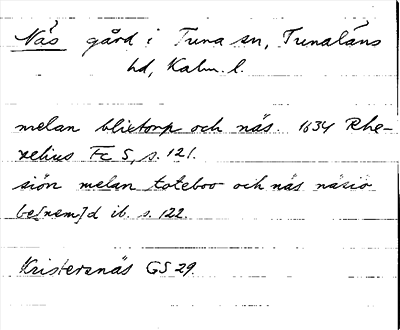 Näs gård i Tuna sn, Tunaläns
hd, Kalm. l.
melan blietorp och näs. 1634 Rhe-
zelius Fc 5, s. 121.
siön melan toteboo och näs näsiö
be[nem]d ib. s. 122.
Kristersnäs GS 29